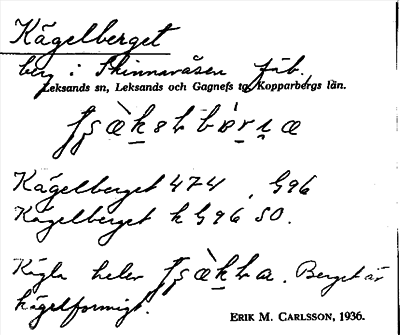 Kägelberget
berg i Skinnaråsen fäb.,
Leksands sn, Leksands och Gagnefs tg, Kopparbergs län.
Kägelberget 474, G96
Kägelberget k G96 SO.
Kägla heter. Berget är
kägelformigt.
ERIK M. CARLSSON, 1936.